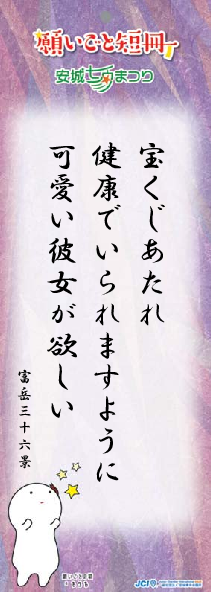 願いごと短冊
安城七夕まつり
宝くじあたれ
健康でいられますように
可愛い彼女が欲しい
富岳三十六景
JCI